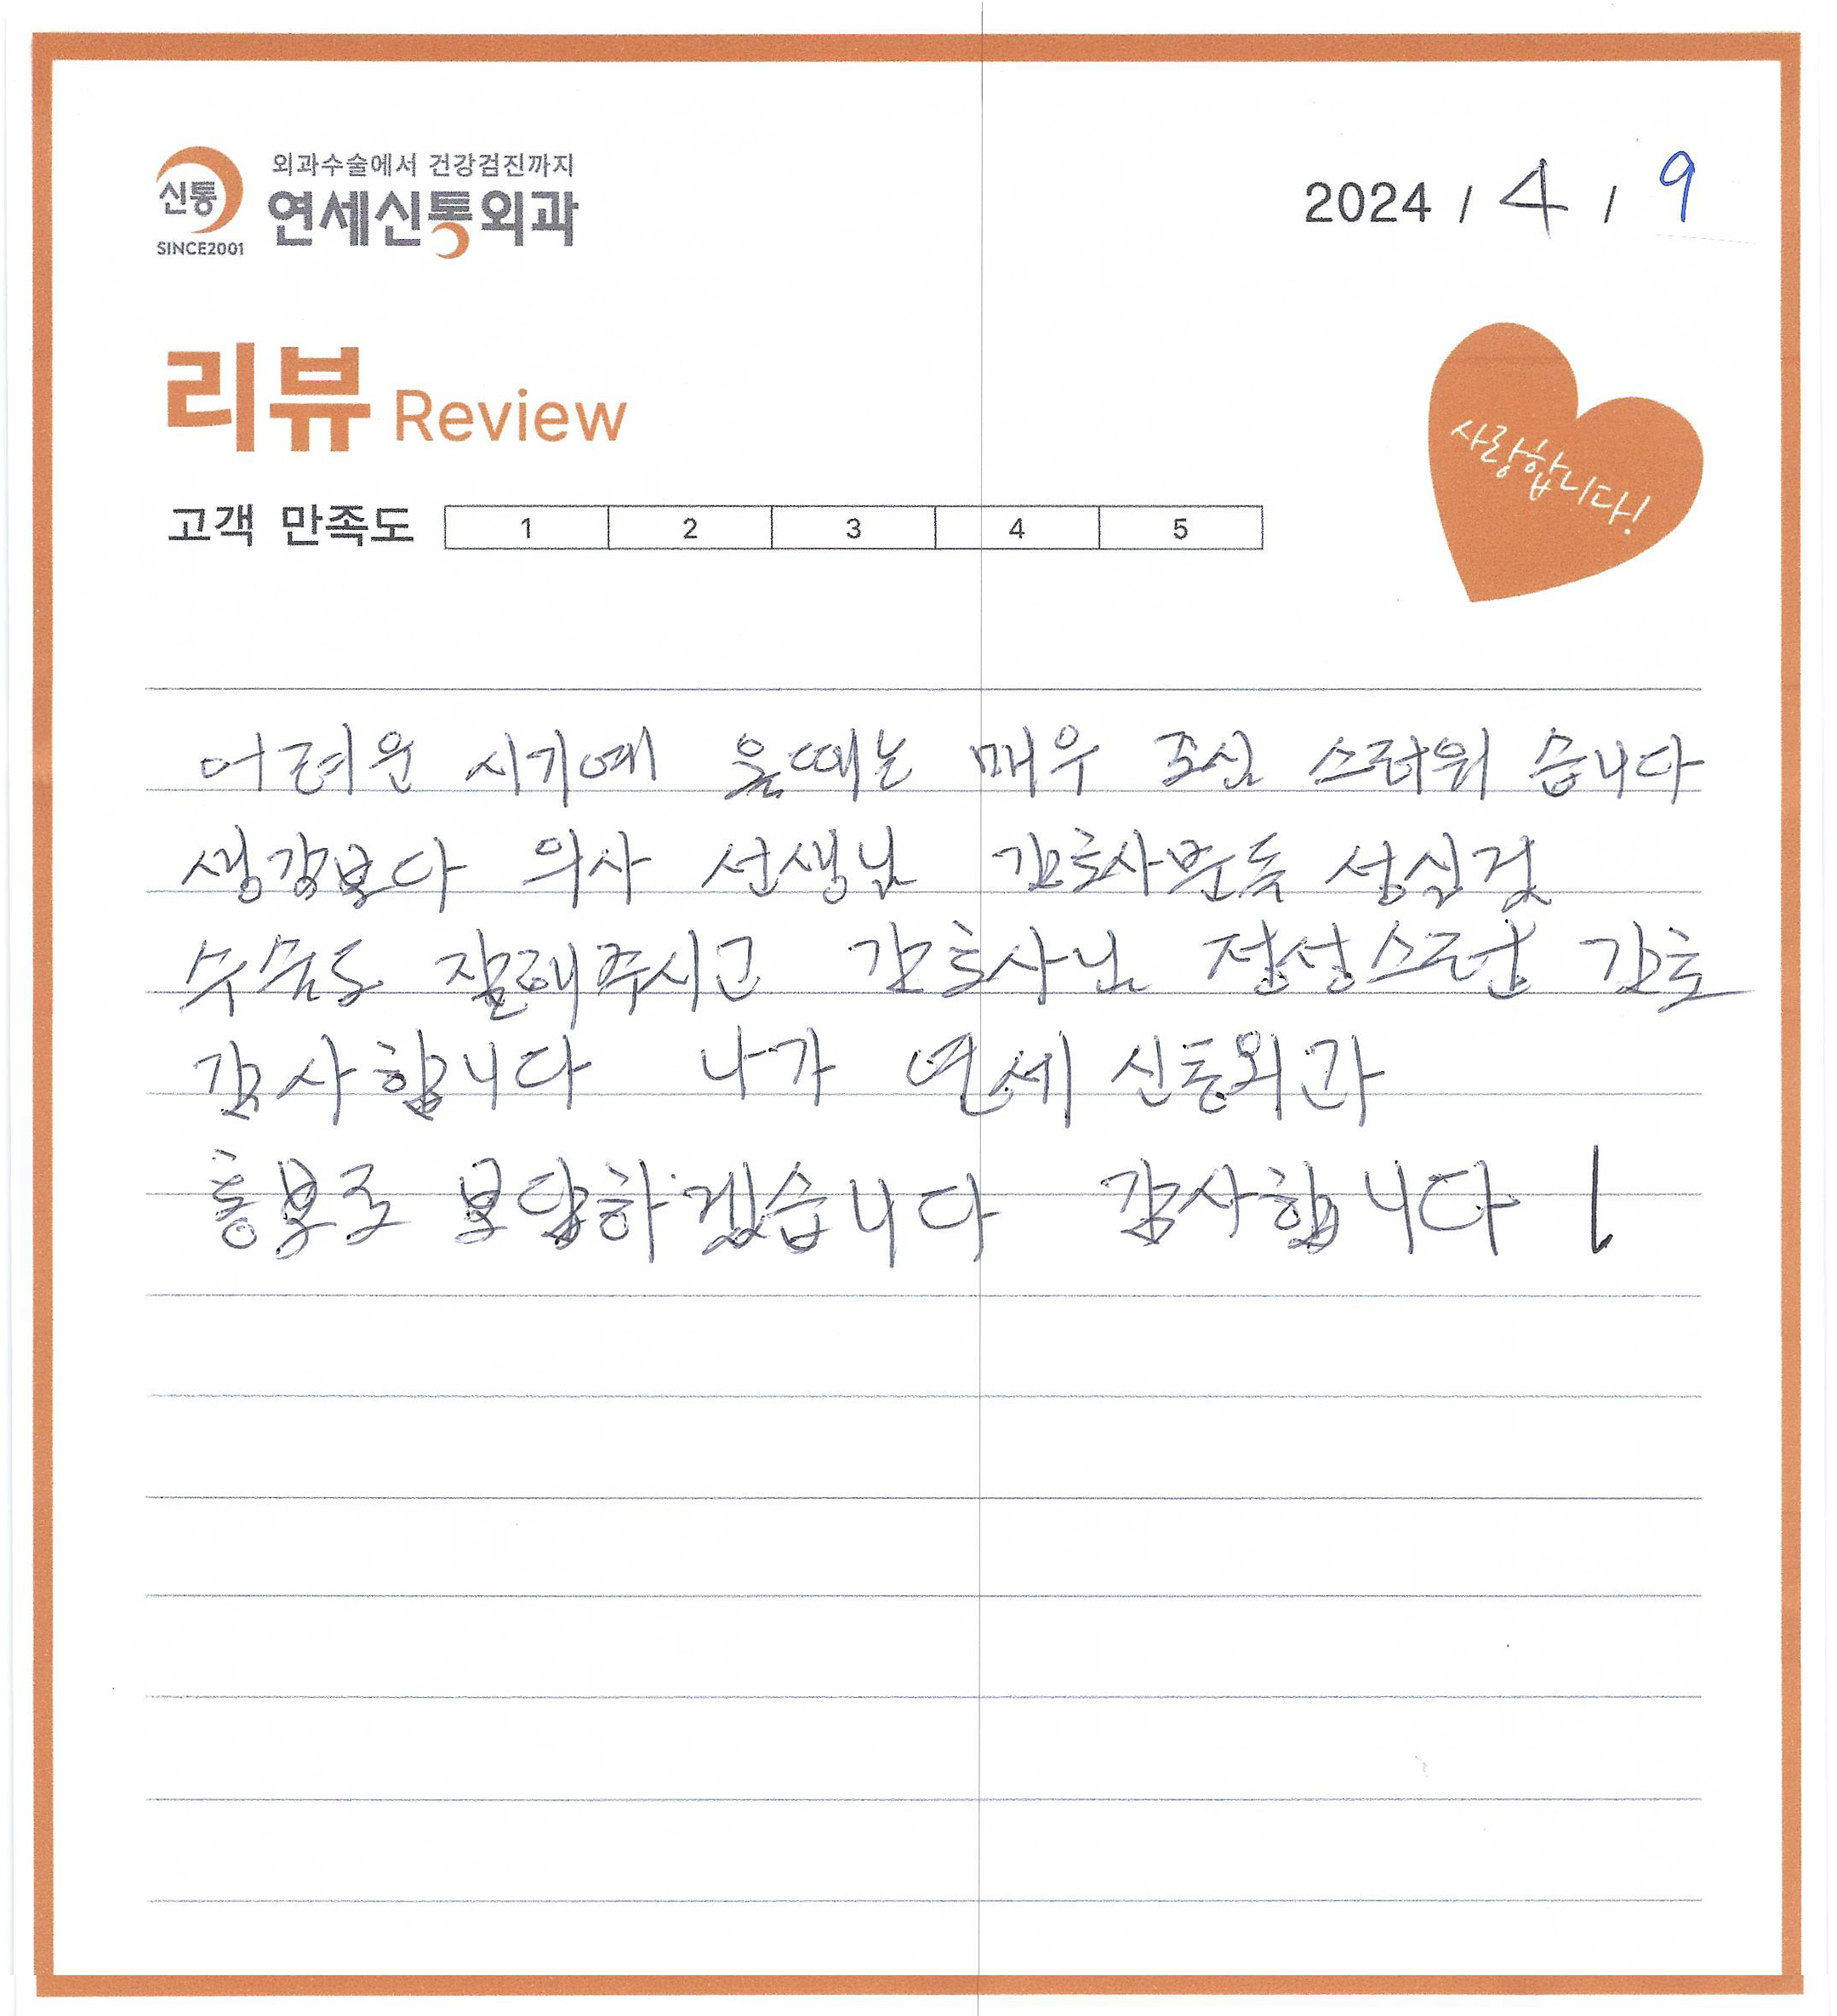 외과수술에서 건강검진까지
신통 연세신통외과
SINCE2001
2024 / 4 / 9
리뷰 Review
사랑합니다!
고객 만족도 1 2 3 4 5
어려운 시기에 올때는 매우 조심 스러워 습니다
생강보다 의사 선생님 간호사분등 성실것
수술도 잘해주시고 간호사님 정성스런 간호
감사합니다 나가 연세 신통외과
홍보로 보답하겠습니다 감사합니다 !